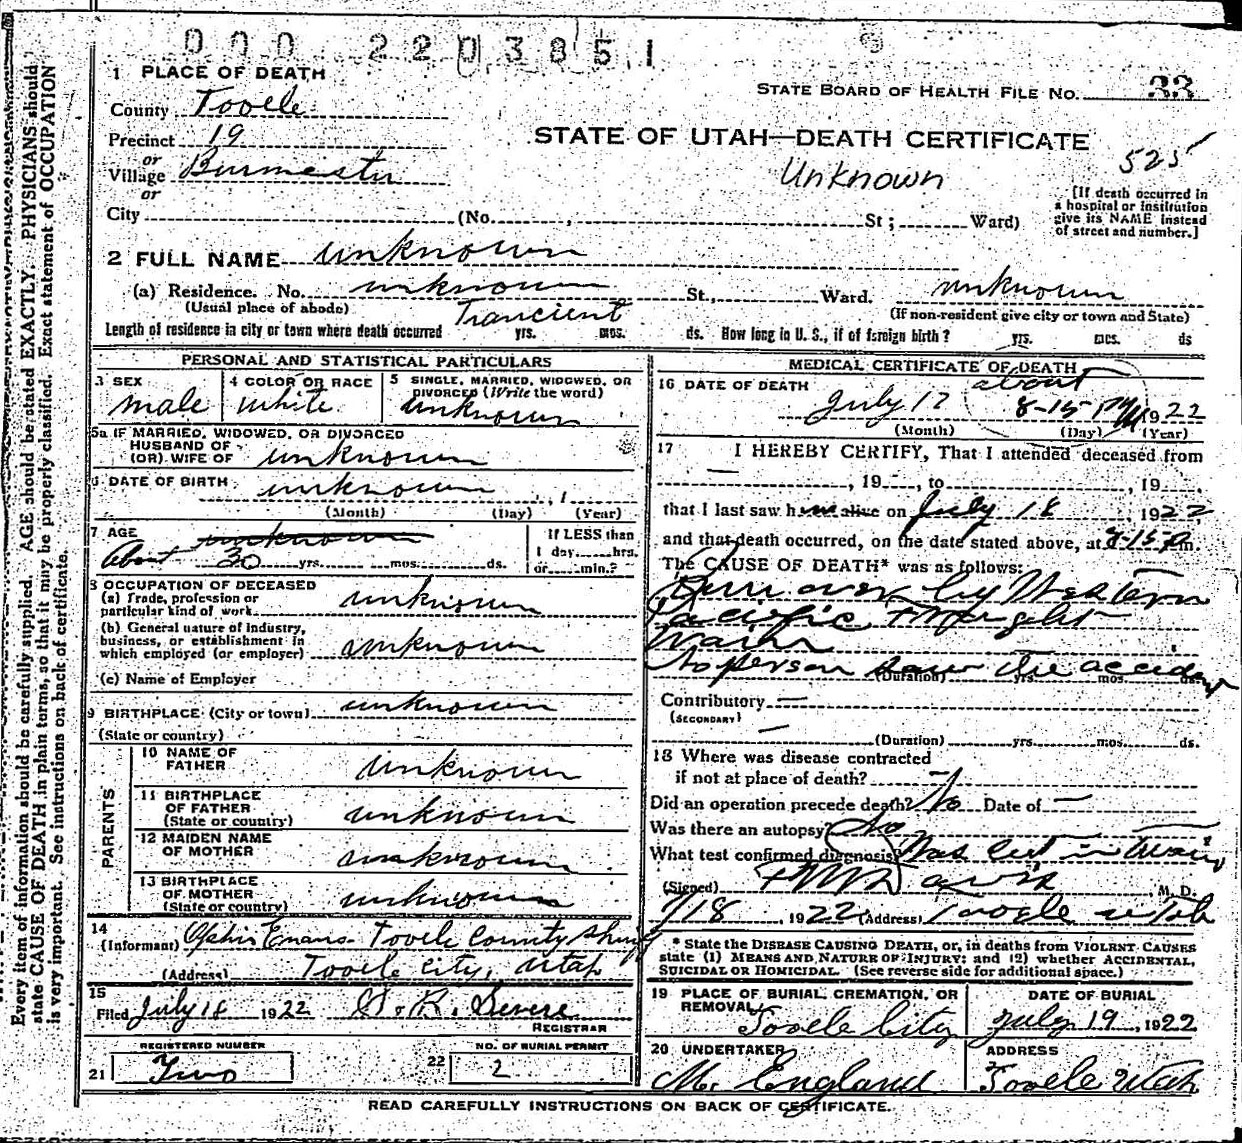 000 2203851
1 PLACE OF DEATH
STATE BOARD OF HEALTH FILE NO. 33
County Tooele
Precinct 19
STATE OF UTAH—DEATH CERTIFICATE
525
or
Village Burmester
Unknown
or
City (No. , St ; Ward)
[If death occurred in
a hospital or institution
give its NAME instead
of street and number.]
2 FULL NAME unknown
(a) Residence. No. unknown St., Ward. unknown
(Usual place of abode) Trancient (If non-resident give city or town and State)
Length of residence in city or town where death occurred yrs. mos. ds. How long in U. S., if of foreign birth? yrs. mos. ds
PERSONAL AND STATISTICAL PARTICULARS
3 SEX
male
4 COLOR OR RACE
white
5 SINGLE, MARRIED, WIDOWED, OR
DIVORCED (Write the word)
unknown
5a IF MARRIED, WIDOWED, OR DIVORCED
HUSBAND OF
(OR) WIFE OF unknown
6 DATE OF BIRTH unknown , 1
(Month) (Day) (Year)
7 AGE unknown
About 30 yrs. mos. ds.
If LESS than
1 day, hrs.
or min.?
8 OCCUPATION OF DECEASED
(a) Trade, profession or
particular kind of work unknown
(b) General nature of industry,
business, or establishment in
which employed (or employer) unknown
(c) Name of Employer
9 BIRTHPLACE (City or town) unknown
(State or country)
PARENTS
10 NAME OF
FATHER unknown
11 BIRTHPLACE
OF FATHER
(State or country) unknown
12 MAIDEN NAME
OF MOTHER unknown
13 BIRTHPLACE
OF MOTHER
(State or country) unknown
14
(Informant) Ophir Evans Tooele County
(Address) Tooele City, Utah
15
Filed July 18 1922 Severe
REGISTRAR
REGISTERED NUMBER
21 Two
NO. OF BURIAL PERMIT
22 2
MEDICAL CERTIFICATE OF DEATH
16 DATE OF DEATH about
July 17 8-15 PM 1922
(Month) (Day) (Year)
17 I HEREBY CERTIFY, That I attended deceased from
— , 19 , to , 19
that I last saw him alive on July 18 1922
and that death occurred, on the date stated above, at 8-15 P m.
The CAUSE OF DEATH* was as follows:
Run over by Western
Pacific Fraught
Train
No person saw the accident
(Duration) yrs. mos. ds.
Contributory —
(SECONDARY)
(Duration) yrs. mos. ds.
18 Where was disease contracted
if not at place of death?
Did an operation precede death? No Date of —
Was there an autopsy? No
What test confirmed diagnosis? Was cut in twain
(Signed) Davis M. D.
7/18, 1922 (Address) Tooele Utah
* State the DISEASE CAUSING DEATH, or, in deaths from VIOLENT CAUSES
state (1) MEANS AND NATURE OF INJURY: and (2) whether ACCIDENTAL,
SUICIDAL OR HOMICIDAL. (See reverse side for additional space.)
19 PLACE OF BURIAL, CREMATION, OR
REMOVAL
Tooele City
DATE OF BURIAL
July 19, 1922
20 UNDERTAKER
M. England
ADDRESS
Tooele Utah
READ CAREFULLY INSTRUCTIONS ON BACK OF CERTIFICATE.
Every item of information should be carefully supplied. AGE should be stated EXACTLY. PHYSICIANS should
state CAUSE OF DEATH in plain terms, so that it may be properly classified. Exact statement of OCCUPATION
is very important. See instructions on back of certificate.